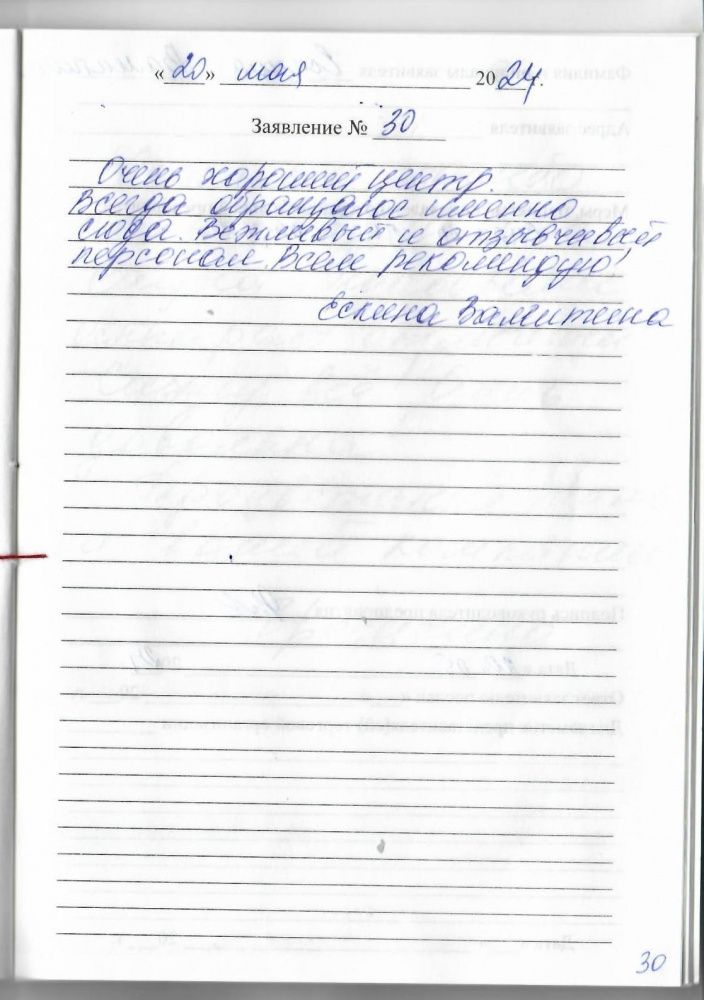 « 20 » мая 2024г.
Заявление № 30
Очень хороший центр.
Всегда обращаюс именно
сюда. Вежливый и отзывчивый
персонал. Всем рекомендую!
Ескина Валентина
30